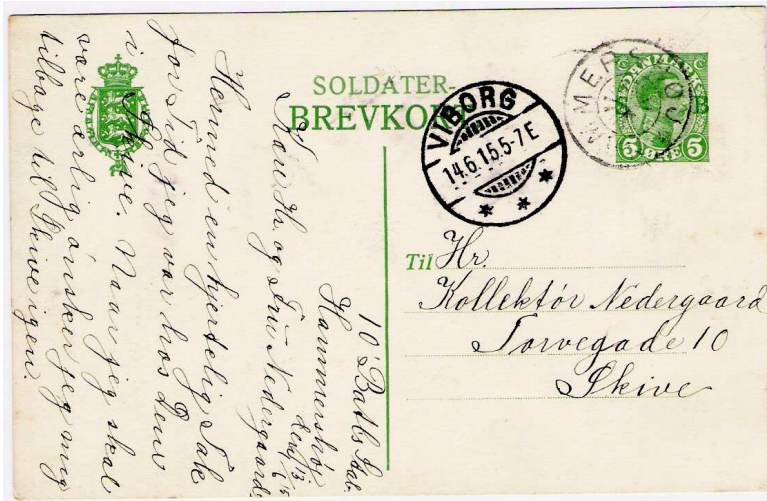 SOLDATER-
BREVKORT
DANMARK
5 ØRE 5
VIBORG
14.6.15.5-7 E
Til Hr.
Kollektør Nedergaard
Torvegade 10
Skive
10 Batls Stab
Hammershøj
den 13/6 15
Kære Hr. og Fru Nedergaard
Hermed en hjertelig Tak
for Tid jeg var hos Dem
i Skive. Naar jeg skal
være ærlig ønsker jeg mig
tilbage til Skive igen.